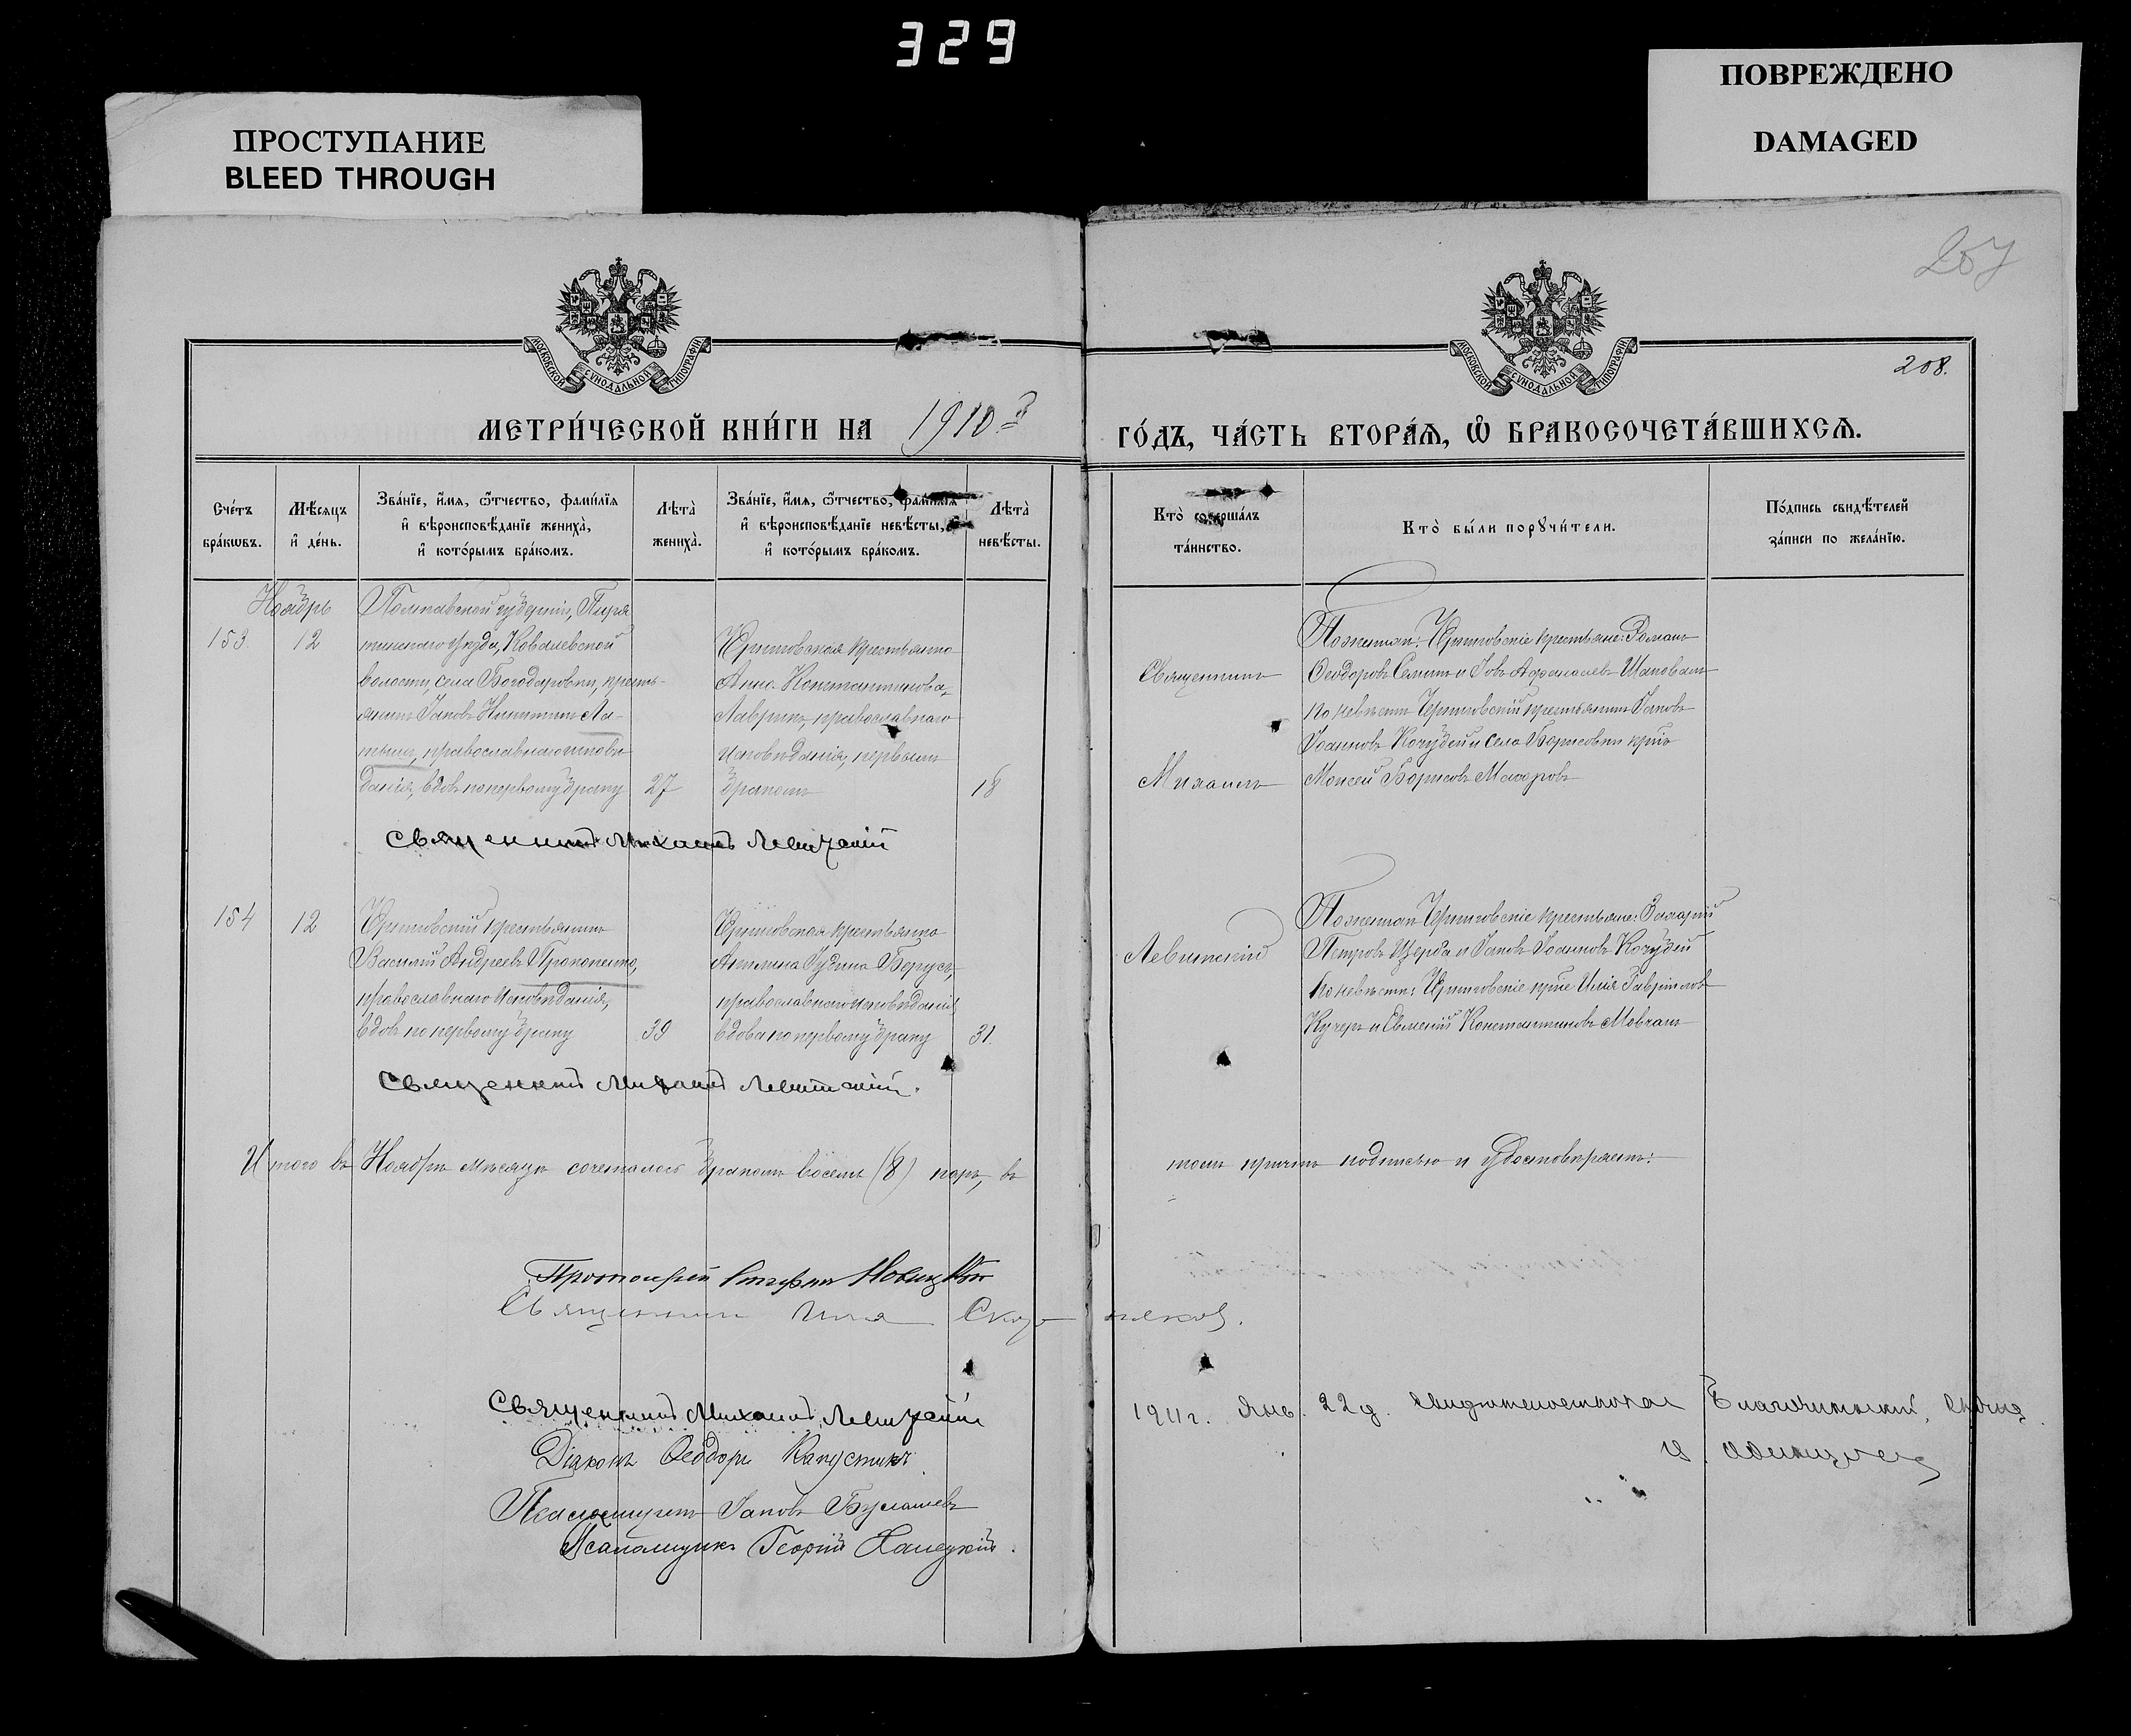 329
ПРОСТУПАНИЕ
BLEED THROUGH
ПОВРЕЖДЕНО
DAMAGED
207
208.
МОСКОВСКОЙ СѴНОДАЛЬНОЙ ТИПОГРАФІИ
МОСКОВСКОЙ СѴНОДАЛЬНОЙ ТИПОГРАФІИ
МЕТРИ́ЧЕСКОЙ КНИ́ГИ НА 1910й
ГО́ДЪ, ЧА́СТЬ ВТОРА́Ѧ, Ѽ БРАКОСОЧЕТА́ВШИХСѦ.
Сче́тъ бра́кѡвъ.
Мѣ́сяцъ и҆ де́нь.
Зва́нїе, и҆́мя, ѻ҆́тчество, фами́лїя и҆ вѣроисповѣ́данїе жениха̀, и҆ кото́рымъ бра́комъ.
Лѣта̀ жениха̀.
Зва́нїе, и҆́мя, ѻ҆́тчество, фами́лїя и҆ вѣроисповѣ́данїе невѣ́сты, и҆ кото́рымъ бра́комъ.
Лѣта̀ невѣ́сты.
Кто̀ соверша́лъ та́инство.
Кто̀ бы́ли порꙋчи́тели.
По́дпись свидѣ́телей за́писи по жела́нїю.
Ноябрь
153 12
Полтавской губерніи, Пиря
тинскаго уѣзда, Ковалевской
волости, села Богодаровки, кресть-
янинъ Іаковъ Никитинъ Ла-
православнаго исповѣ
данія, вдовъ по первому браку 27
крестьянка
Анна Константинова
Лавринъ, православнаго
исповѣданія, первымъ
бракомъ 18
Священникъ
Михаилъ
Левитскій
По женихѣ: крестьяне: Романъ
Ѳеодоровъ и Іовъ Аѳанасіевъ Шаповалъ
по невѣстѣ крестьянинъ Іаковъ
Іоанновъ Кочубей и села Борисовки кр-нъ
Моисей Борисовъ Макаровъ
Священникъ Михаилъ Левитскій
154 12
крестьянинъ
Василій Андреевъ Прокопенко,
православнаго исповѣданія,
вдовъ по первому браку 39
крестьянка
православнаго исповѣданія
вдова по первому браку 31.
По женихѣ крестьяне: Захарій
Петровъ Щерба и Іаковъ Іоанновъ Кочубей
по невѣстѣ: кр-не Илія Гавриловъ
Кучеръ и Евменій Константиновъ Мовчанъ
Священникъ Михаилъ Левитскій.
Итого въ Ноябрѣ мѣсяцѣ сочеталось бракомъ восемь (8) паръ, въ
томъ причтъ подписью и удостовѣряетъ:
Протоіерей Стефанъ Новицкій
Священникъ Илія
Священникъ Михаилъ Левитскій
Діаконъ Ѳеодоръ Капустинъ
Псаломщикъ Іаковъ Булашевъ
Псаломщикъ Георгій Халецкій.
1911г. Янв. 22д. свидѣтельствовалъ Благочинный, священ.